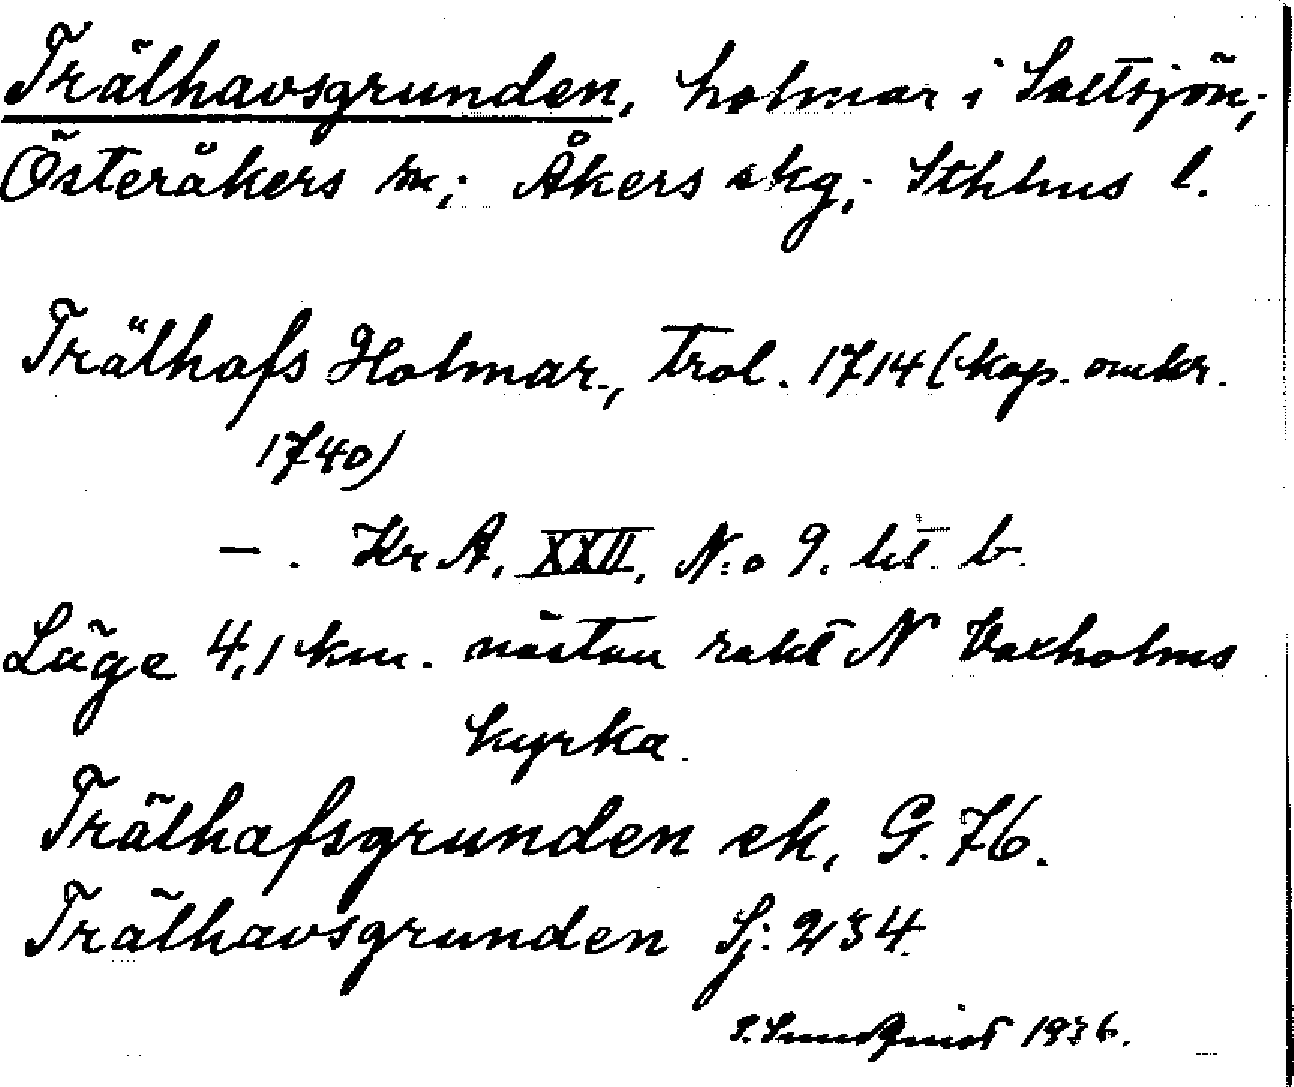 Trälhavsgrunden, holmar i Saltsjön;
Österåkers sn; Åkers skg; Sthlms l.
Trälhafs Holmar, trol. 1714 (kop. omkr.
1740)
—. Kr A, XXII, N:o 9. lit. b.
Läge 4,1 km. nästan rakt N Vaxholms
kyrka.
Trälhafsgrunden ek, G. 76.
Trälhavsgrunden Sj. 234.
S. Sundquist 1936.